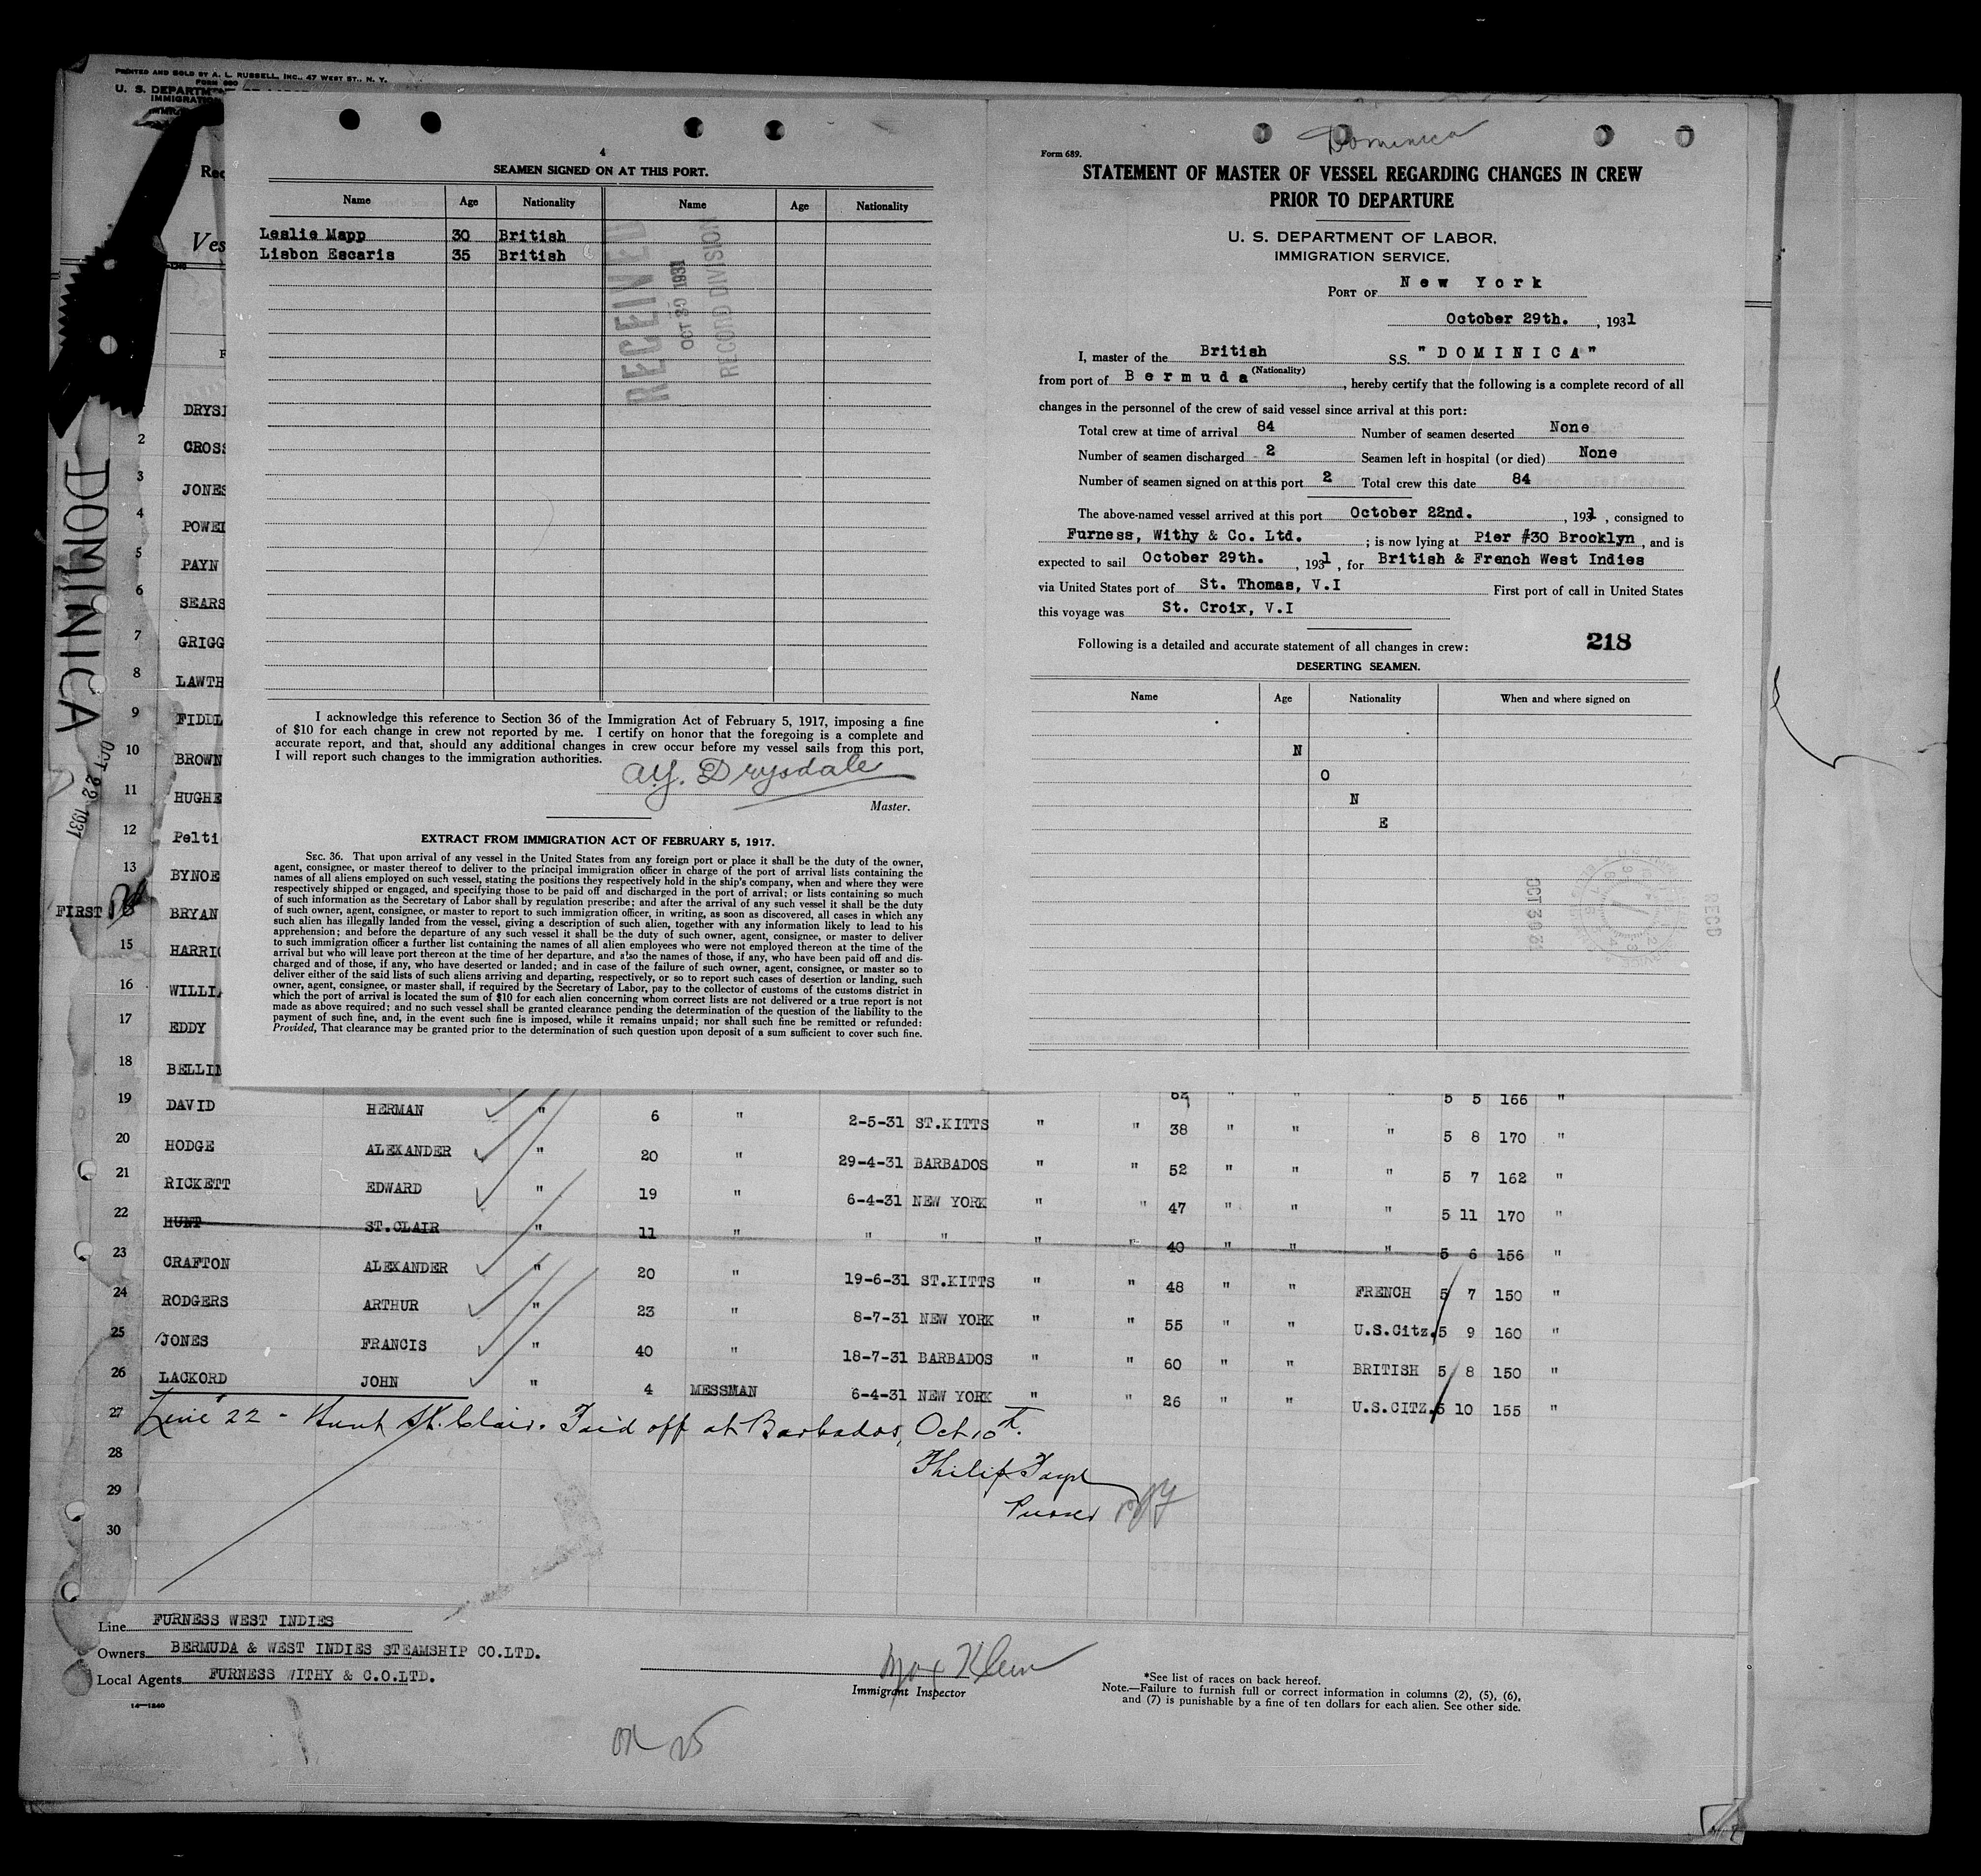 PRINTED AND SOLD BY A. L. RUSSELL, INC., 47 WEST ST., N. Y.
FORM 680
U. S. DEPARTM
IMMIGRATION
Rec
Ves
DOMINICA
OCT 22 1931
FIRST
4
SEAMEN SIGNED ON AT THIS PORT.
Name Age Nationality Name Age Nationality
Leslie Mapp 30 British
Lisbon Escaris 35 British
RECEIVED
OCT 30 1931
RECORD DIVISION
I acknowledge this reference to Section 36 of the Immigration Act of February 5, 1917, imposing a fine
of $10 for each change in crew not reported by me. I certify on honor that the foregoing is a complete and
accurate report, and that, should any additional changes in crew occur before my vessel sails from this port,
I will report such changes to the immigration authorities.
A.Y. Drysdale
Master.
EXTRACT FROM IMMIGRATION ACT OF FEBRUARY 5, 1917.
SEC. 36. That upon arrival of any vessel in the United States from any foreign port or place it shall be the duty of the owner,
agent, consignee, or master thereof to deliver to the principal immigration officer in charge of the port of arrival lists containing the
names of all aliens employed on such vessel, stating the positions they respectively hold in the ship's company, when and where they were
respectively shipped or engaged, and specifying those to be paid off and discharged in the port of arrival; or lists containing so much
of such information as the Secretary of Labor shall by regulation prescribe; and after the arrival of any such vessel it shall be the duty
of such owner, agent, consignee, or master to report to such immigration officer, in writing, as soon as discovered, all cases in which any
such alien has illegally landed from the vessel, giving a description of such alien, together with any information likely to lead to his
apprehension; and before the departure of any such vessel it shall be the duty of such owner, agent, consignee, or master to deliver
to such immigration officer a further list containing the names of all alien employees who were not employed thereon at the time of the
arrival but who will leave port thereon at the time of her departure, and also the names of those, if any, who have been paid off and dis-
charged and of those, if any, who have deserted or landed; and in case of the failure of such owner, agent, consignee, or master so to
deliver either of the said lists of such aliens arriving and departing, respectively, or so to report such cases of desertion or landing, such
owner, agent, consignee, or master shall, if required by the Secretary of Labor, pay to the collector of customs of the customs district in
which the port of arrival is located the sum of $10 for each alien concerning whom correct lists are not delivered or a true report is not
made as above required; and no such vessel shall be granted clearance pending the determination of the question of the liability to the
payment of such fine, and, in the event such fine is imposed, while it remains unpaid; nor shall such fine be remitted or refunded:
Provided, That clearance may be granted prior to the determination of such question upon deposit of a sum sufficient to cover such fine.
Dominica
Form 689.
STATEMENT OF MASTER OF VESSEL REGARDING CHANGES IN CREW
PRIOR TO DEPARTURE
U. S. DEPARTMENT OF LABOR,
IMMIGRATION SERVICE.
PORT OF New York
October 29th., 1931
I, master of the British S.S. "DOMINICA"
(Nationality)
from port of Bermuda, hereby certify that the following is a complete record of all
changes in the personnel of the crew of said vessel since arrival at this port:
Total crew at time of arrival 84 Number of seamen deserted None
Number of seamen discharged 2 Seamen left in hospital (or died) None
Number of seamen signed on at this port 2 Total crew this date 84
The above-named vessel arrived at this port October 22nd., 1931, consigned to
Furness, Withy & Co. Ltd. ; is now lying at Pier #30 Brooklyn, and is
expected to sail October 29th., 1931, for British & French West Indies
via United States port of St. Thomas, V.I First port of call in United States
this voyage was St. Croix, V.I
218
Following is a detailed and accurate statement of all changes in crew:
DESERTING SEAMEN.
Name Age Nationality When and where signed on
N
O
N
E
OCT 30 31
RECD
DRYS
2 CROSS
3 JONES
4 POWEL
5 PAYN
6 SEARS
7 GRIGG
8 LAWTH
9 FIDDL
10 BROWN
11 HUGHE
12 Pelti
13 BYNOE
BRYAN
15 HARRI
16 WILLI
17 EDDY
18 BELLI
19 DAVID HERMAN " 6 " 2-5-31 ST.KITTS " " 38 " " " 5 5 166 "
20 HODGE ALEXANDER " 20 " 29-4-31 BARBADOS " " 52 " " " 5 8 170 "
21 RICKETT EDWARD " 19 " 6-4-31 NEW YORK " " 47 " " " 5 7 162 "
22 HUNT ST.CLAIR " 11 " " " " " 40 " " " 5 11 170 "
23 CRAFTON ALEXANDER " 20 " 19-6-31 ST.KITTS " " 48 " " FRENCH 5 6 156 "
24 RODGERS ARTHUR " 23 " 8-7-31 NEW YORK " " 55 " " U.S.Citz. 5 7 150 "
25 JONES FRANCIS " 40 " 18-7-31 BARBADOS " " 60 " " BRITISH 5 9 160 "
26 LACKORD JOHN " 4 MESSMAN 6-4-31 NEW YORK " " 26 " " U.S.CITZ. 5 8 150 "
5 10 155 "
27 Line 22 - Hunt St. Clair. Paid off at Barbados, Oct 10th.
28
29
30
Philip
Purser
Line FURNESS WEST INDIES
Owners BERMUDA & WEST INDIES STEAMSHIP CO.LTD.
Local Agents FURNESS WITHY & C.O.LTD.
14—1240
Max Klein
Immigrant Inspector
*See list of races on back hereof.
Note.—Failure to furnish full or correct information in columns (2), (5), (6),
and (7) is punishable by a fine of ten dollars for each alien. See other side.